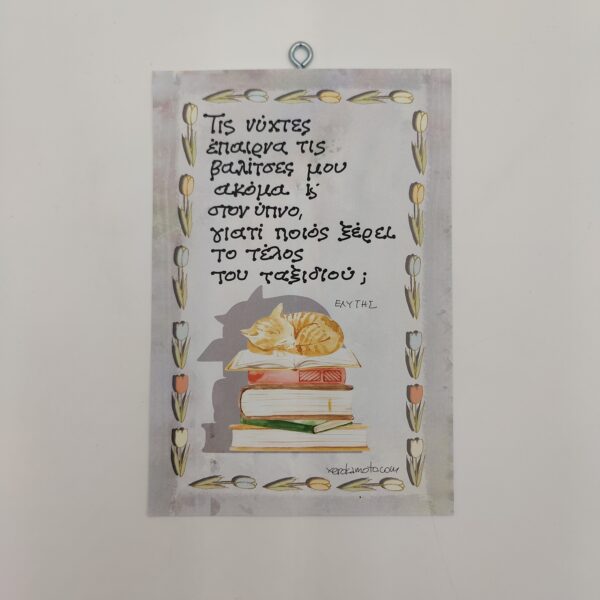 Τις νύχτες
έπαιρνα τις
βαλίτσες μου
ακόμα ϗ
στον ύπνο,
γιατί ποιός ξέρει
το τέλος
του ταξιδιού;
ΕΛΥΤΗΣ
xerokamoto.com